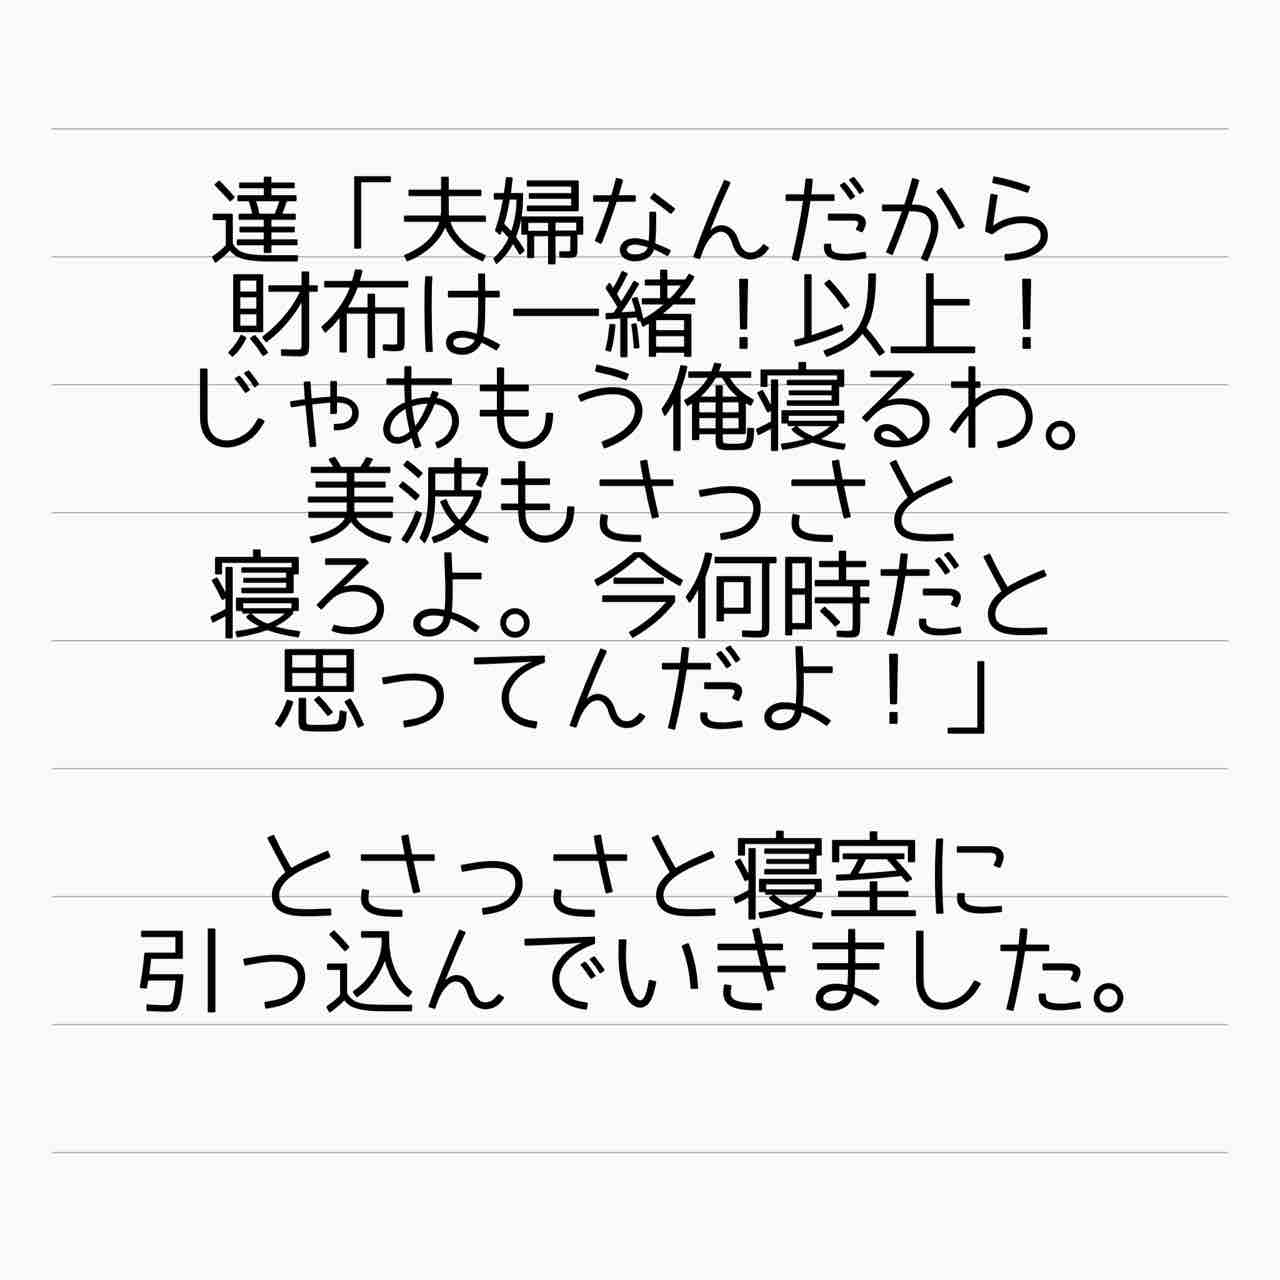 達「夫婦なんだから
財布は一緒！以上！
じゃあもう俺寝るわ。
美波もさっさと
寝ろよ。今何時だと
思ってんだよ！」
とさっさと寝室に
引っ込んでいきました。